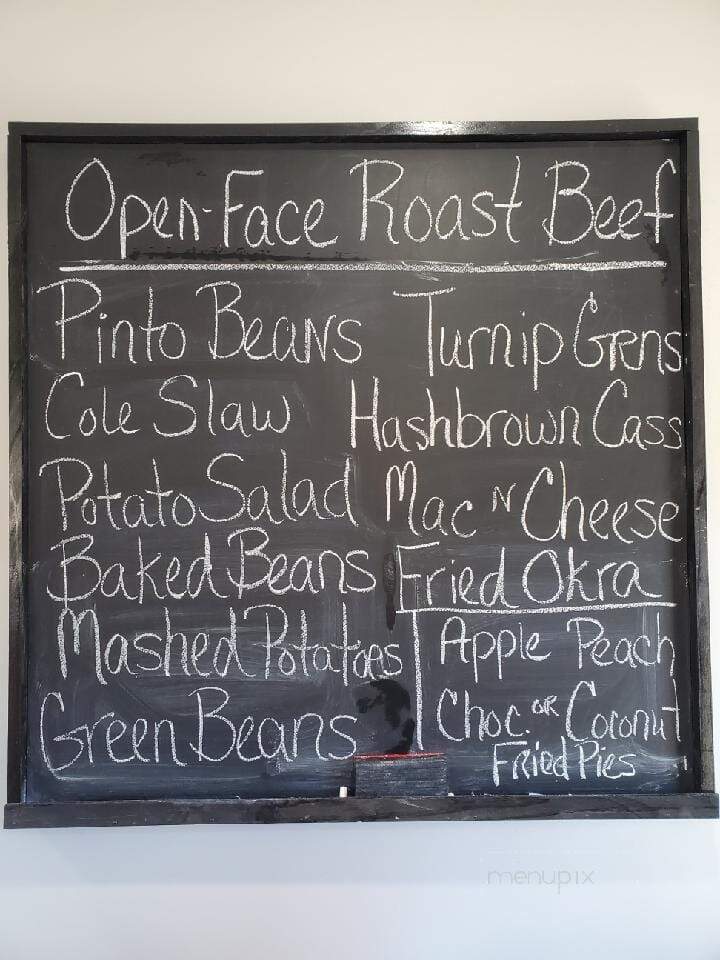 Open-Face Roast Beef
Pinto Beans
Cole Slaw
Potato Salad
Baked Beans
Mashed Potatoes
Green Beans
Turnip Grns
Hashbrown Cass
Mac N Cheese
Fried Okra
Apple Peach
Choc. or Coconut
Fried Pies
menupix